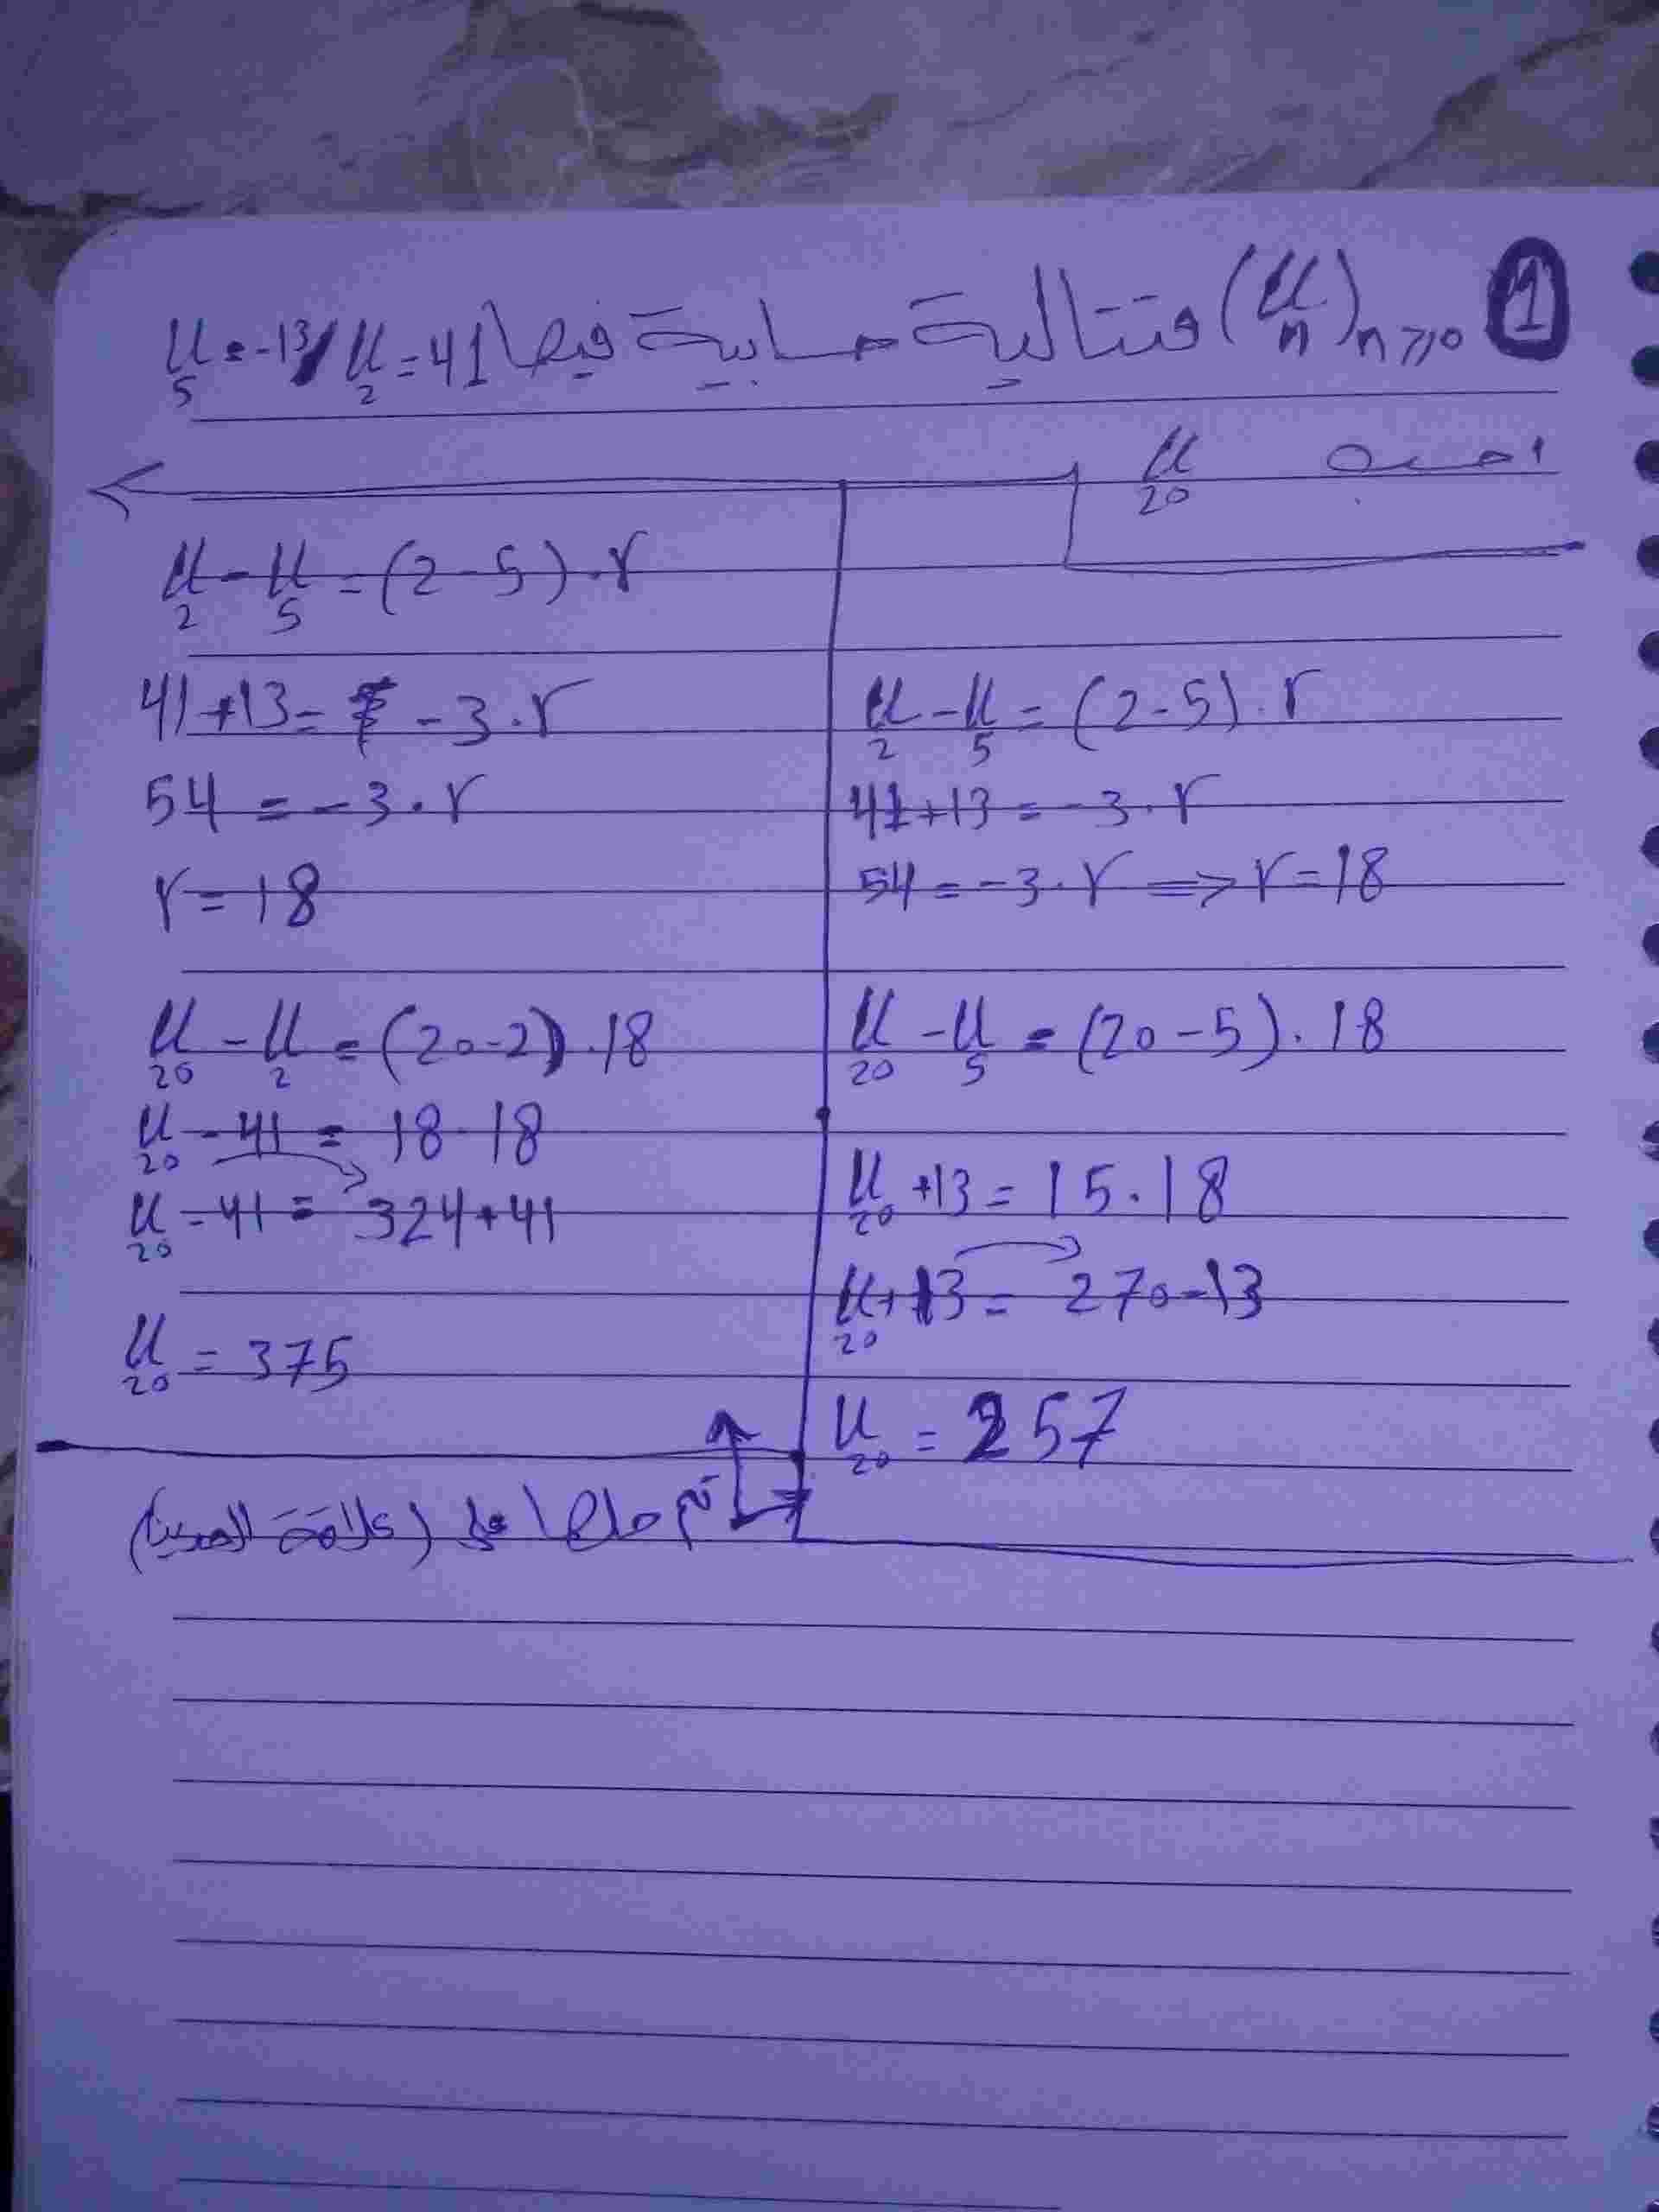 1 (u_n)_n≥0 متتالية حسابية فيها u_2 = 41 / u_5 = -13
احسب u_20
u_2 - u_5 = (2-5).r
41+13 = -3.r
54 = -3.r => r=18
u_20 - u_5 = (20-5).18
u_20 +13 = 15.18
u_20 + 13 = 270-13
u_20 = 257
u_2 - u_5 = (2-5).r
41+13 = -3.r
54 = -3.r
r = 18
u_20 - u_2 = (20-2).18
u_20 - 41 = 18.18
u_20 - 41 = 324+41
u_20 = 375
تم حلها على (علامة